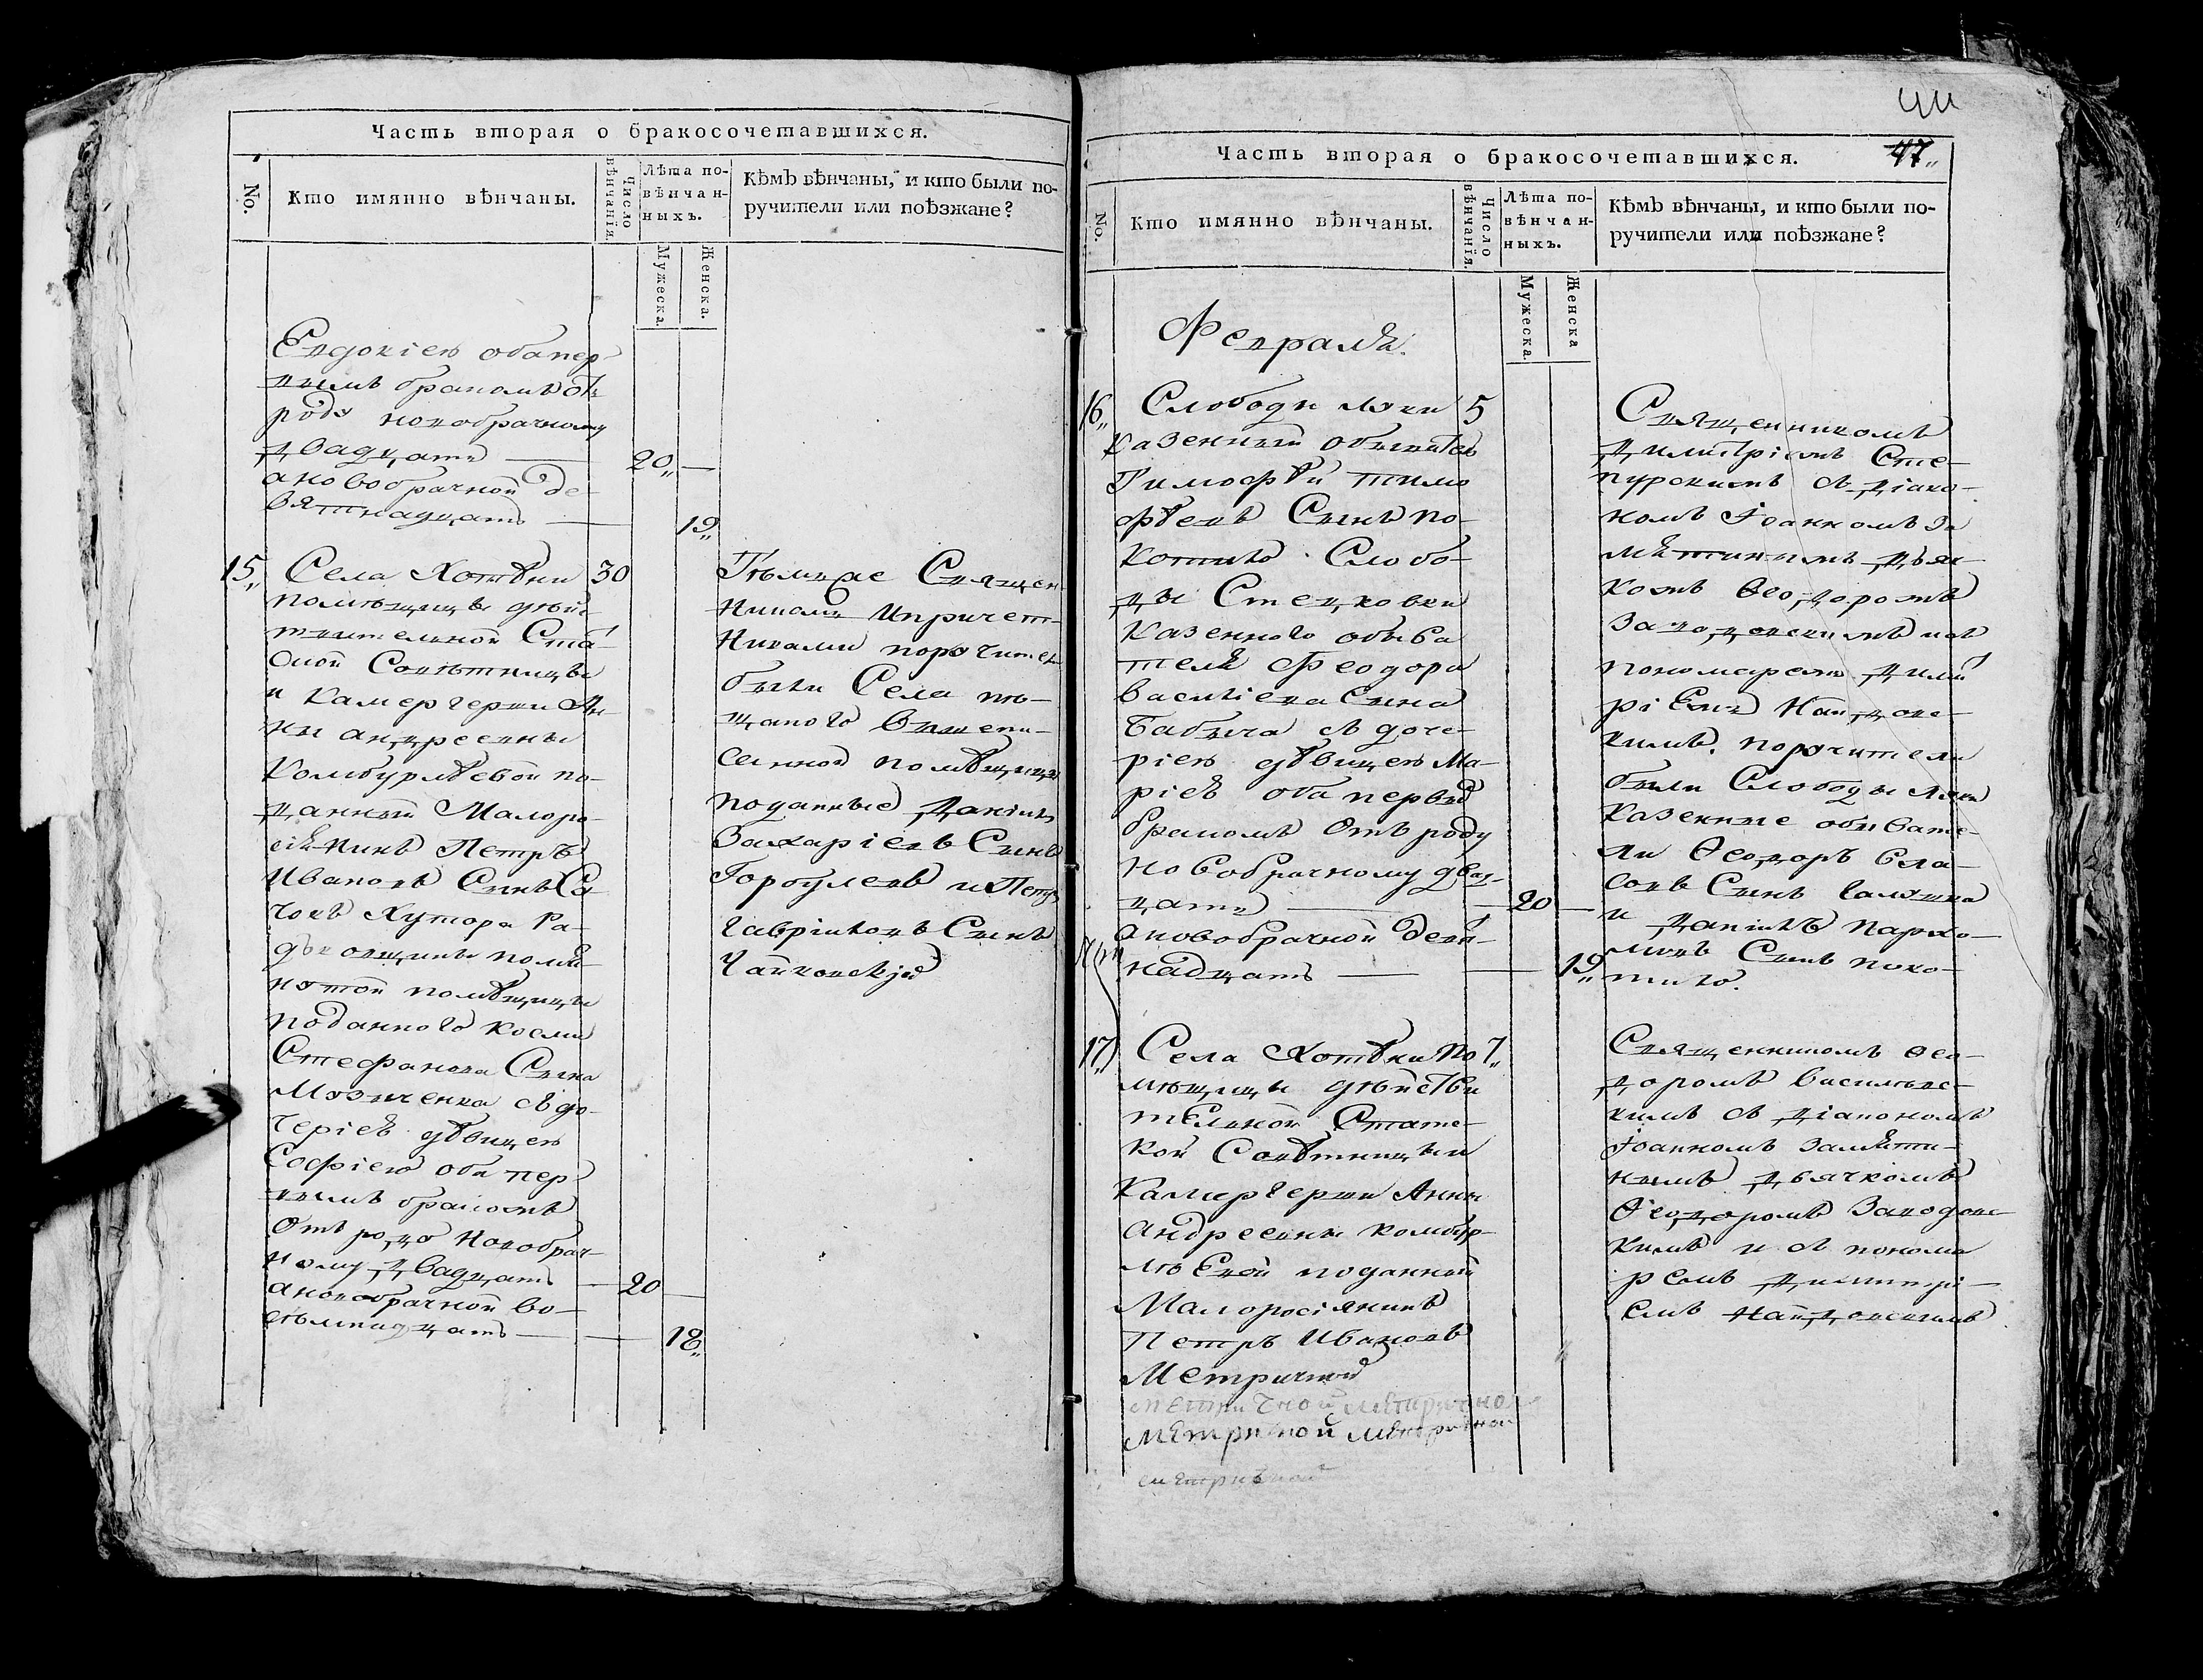 Часть вторая о бракосочетавшихся.
No.
Кто имянно вѣнчаны.
Число вѣнчанія.
Лѣта по-
вѣнчан-
ныхъ.
Мужеска.
Женска.
Кѣмъ вѣнчаны, и кто были по-
ручители или поѣзжане?
Евдокіею оба пер-
вымъ бракомъ отъ
роду новобрачному
двадцать 20
а новобрачной де-
вятнадцать 19
15 Села Хотѣни 30
помѣщицы дѣйс
твительной Ста
ской Совѣтницы
и Камергерши Ан-
ны Андреевны
Комбурлѣевой по-
данный Малоро-
сіянинъ Петръ
Ивановъ Сынъ
Хутора Ра-
помя-
нутой помѣщицы
поданного Косми
Стефанова Сына
съ до-
черіею дѣвицею
Софіею оба пер-
вымъ бракомъ
Отъ роду новобрач-
ному двадцать 20
а новобрачной во-
семнадцать 18
Тѣмже Священ-
никомъ и причет-
никами поручители
были Села
помѣщици
поданные Даніилъ
Захаріевъ Сынъ
и Петръ
Гавріиловъ Сынъ
Чайковскій
44
47
Часть вторая о бракосочетавшихся.
No.
Кто имянно вѣнчаны.
Число вѣнчанія.
Лѣта по-
вѣнчан-
ныхъ.
Мужеска.
Женска
Кѣмъ вѣнчаны, и кто были по-
ручители или поѣзжане?
Февраля.
16 Слободы 5
казенный обыватель
Тимофѣй Тимо
фѣевъ Сынъ По-
котило Слобо-
ды Стецковки
казенного обыва
теля Феодора
Василіева Сына
Бабича съ доче-
ріею дѣвицею Ма-
ріею оба первымъ
бракомъ Отъ роду
новобрачному двад-
цать 20
а новобрачной девят-
надцать 19
Священникомъ
Димитріемъ Сте-
пурскимъ съ діако-
номъ Іоанномъ За
мятинымъ дьяч-
комъ Ѳеодоромъ
Заводовскимъ и съ
пономаремъ Димит
ріемъ
поручители
были Слободы
казенные обывате-
ли Ѳеодоръ Вла-
совъ Сынъ
и Даніилъ Пархо-
мовъ Сынъ Поко-
тило.
17 Села Хотѣни по 7
мѣщицы дѣйстви
тельной Статс-
кой Совѣтницы и
Камергерши Анны
Андреевны Комбур-
лѣевой поданный
Малоросіянинъ
Петръ Ивановъ
Метричной
метричной метричной
метричной метричной
метричной
Священникомъ Ѳео-
доромъ Васильевс-
кимъ съ діакономъ
Іоанномъ Замяти-
нымъ дьячкомъ
Ѳеодоромъ Заводовс-
кимъ и съ понома
ремъ Димитрі-
емъ